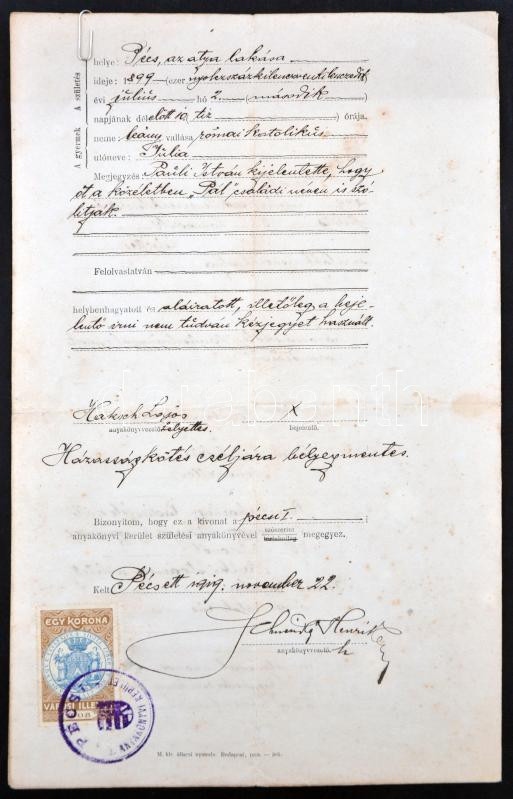 A gyermek A születés
helye: Pécs, az atya lakása
ideje: 1899 (ezer nyolczszázkilenczvenkilenczedik
évi julius hó 2. (második
napjának délelőtt 10 tiz ) órája.
neme: leány, vallása római katolikus
utóneve: Júlia
Megjegyzés Pauli István kijelentette, hogy
őt a közéletben „Pál" családi néven is szó-
litják.
Felolvastatván
helybenhagyatott és aláiratott, illetőleg a beje-
lentő irni nem tudván kézjegyét használt.
Haksch Lajos X
anyakönyvvezető helyettes. bejelentő.
Házasságkötés czéljára bélyegmentes.
Bizonyítom, hogy ez a kivonat a pécsi I. i
anyakönyvi kerület születési anyakönyvével szószerint megegyez.
Kelt Pécsett 1919. november 22.
Henrik
anyakönyvvezető. h
EGY KORONA
VÁROSI ILLET
PÉCS
M. kir. állami nyomda. Budapest,